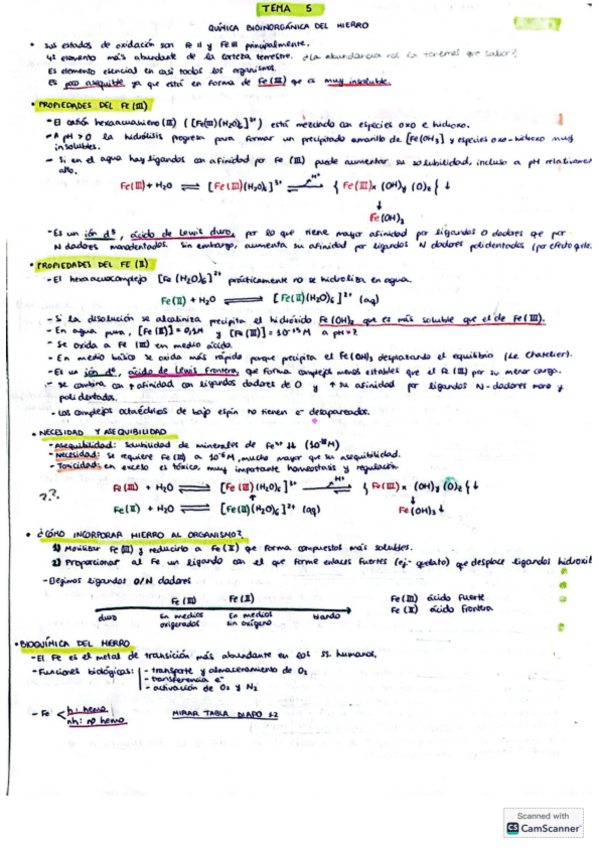 TEMA 5
QUÍMICA BIOINORGÁNICA DEL HIERRO
• sus estados de oxidación son Fe II y Fe III principalmente.
4º elemento más abundante de la corteza terrestre. ¿La abundancia nos la tenemos que saber?
Es elemento esencial en casi todos los organismos.
Es poco asequible ya que está en forma de Fe(III) que es muy insoluble.
• PROPIEDADES DEL Fe(III)
- El catión hexaacuahierro (III) ([Fe(III)(H₂O)₆]³⁺) está mezclado con especies oxo e hidroxo.
- A pH > 0 la hidrólisis progresa para formar un precipitado amarillo de [Fe(OH)₃] y especies oxo-hidroxo muy
insolubles.
- Si en el agua hay ligandos con afinidad por Fe (III) puede aumentar su solubilidad, incluso a pH relativamente
alto.
Fe(III) + H₂O ⇌ [Fe(III)(H₂O)₆]³⁺ ⇌ H⁺ { Fe(III)x (OH)y (O)z } ↓
↓
Fe(OH)₃
- Es un ión d⁵, ácido de Lewis duro, por lo que tiene mayor afinidad por ligandos O dadores que por
N dadores monodentados. Sin embargo, aumenta su afinidad por ligandos N dadores polidentados (por efecto quelato
• PROPIEDADES DEL FE (II)
- El hexaacuocomplejo [Fe (H₂O)₆]²⁺ prácticamente no se hidroliza en agua.
Fe(II) + H₂O ⇌ [Fe(II)(H₂O)₆]²⁺ (aq)
- Si la disolución se alcaliniza precipita el hidróxido Fe(OH)₂ que es más soluble que el de Fe(III).
- En agua pura, [Fe(II)] = 0,1M y [Fe(III)] = 10⁻¹⁵ M a pH=7
- Se oxida a Fe (III) en medio ácido.
- En medio básico se oxida más rápido porque precipita el Fe(OH)₃ desplazando el equilibrio (Le Chatelier).
- Es un ión d⁶, ácido de Lewis frontera, que forma complejos menos estables que el Fe (III) por su menor carga.
- se combina con ↑ afinidad con ligandos dadores de O y ↑ su afinidad por ligandos N-dadores mono y
polidentada.
- Los complejos octaédricos de bajo espín no tienen e⁻ desapareados.
• NECESIDAD Y ASEQUIBILIDAD
- Asequibilidad: Solubilidad de minerales de Fe³⁺ ↓↓ (10⁻¹⁸M)
- Necesidad: se requiere Fe (III) a 10⁻⁸M, mucho mayor que su asequibilidad.
- Toxicidad: en exceso es tóxico, muy importante homeostasis y regulación.
Fe(III) + H₂O ⇌ [Fe(III)(H₂O)₆]³⁺ ⇌ H⁺ { Fe(III)x (OH)y (O)z } ↓
??
Fe(II) + H₂O ⇌ [Fe(II)(H₂O)₆]²⁺ (aq) Fe(OH)₃ ↓
• ¿CÓMO INCORPORAR HIERRO AL ORGANISMO?
1) Movilizar Fe(III) y reducirlo a Fe(II) que forma compuestos más solubles.
2) Proporcionar al Fe un ligando con el que forme enlaces fuertes (ej- quelato) que desplace ligandos hidroxil
- Elegimos ligandos O/N dadores
Fe (III) Fe (II)
duro En medios oxigenados En medios sin oxígeno blando
Fe(III) ácido fuerte
Fe(II) ácido frontera
• BIOQUÍMICA DEL HIERRO
- El Fe es el metal de transición más abundante en los ss. humanos.
- Funciones biológicas: - transporte y almacenamiento de O₂
- transferencia e⁻
- activación de O₂ y N₂
- Fe h: hemo
nh: no hemo
MIRAR TABLA DIAPO 12
Scanned with
CS CamScanner